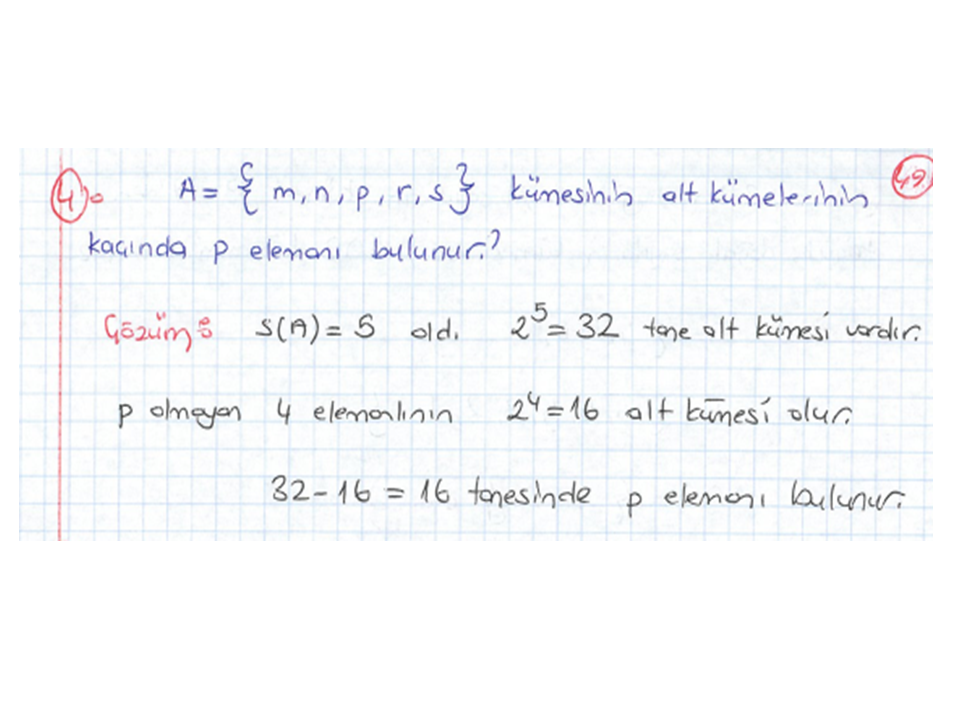 4) A = { m, n, p, r, s } kümesinin alt kümelerinin 49
kaçında p elemanı bulunur?
Çözüm: s(A) = 5 old. 2⁵ = 32 tane alt kümesi vardır.
p olmayan 4 elemanlının 2⁴ = 16 alt kümesi olur.
32 - 16 = 16 tanesinde p elemanı bulunur.